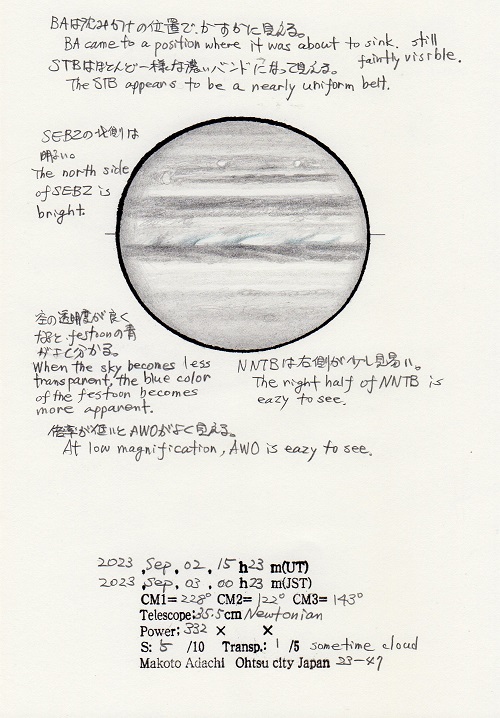 BAは沈みかけの位置で、かすかに見える。
BA came to a position where it was about to sink. still faintly visible.
STBはほとんど一様な濃いバンドになって見える。
The STB appears to be a nearly uniform belt.
SEBZの北側は
明るい。
The north side
of SEBZ is
bright.
空の透明度が良く
なると、festoonの青
がよく分かる。
When the sky becomes less
transparent, the blue color
of the festoon becomes
more apparent.
NNTBは右側が少し見易い。
The right half of NNTB is
eazy to see.
倍率が低いとAWOがよく見える。
At low magnification, AWO is eazy to see.
2023, Sep, 02, 15 h 23 m(UT)
2023, Sep, 03, 00 h 23 m(JST)
CM1= 228° CM2= 122° CM3= 143°
Telescope: 35.5cm Newtonian
Power: 332 × ×
S: 5 /10 Transp.: 1 /5 sometime cloud
Makoto Adachi Ohtsu city Japan 23-47